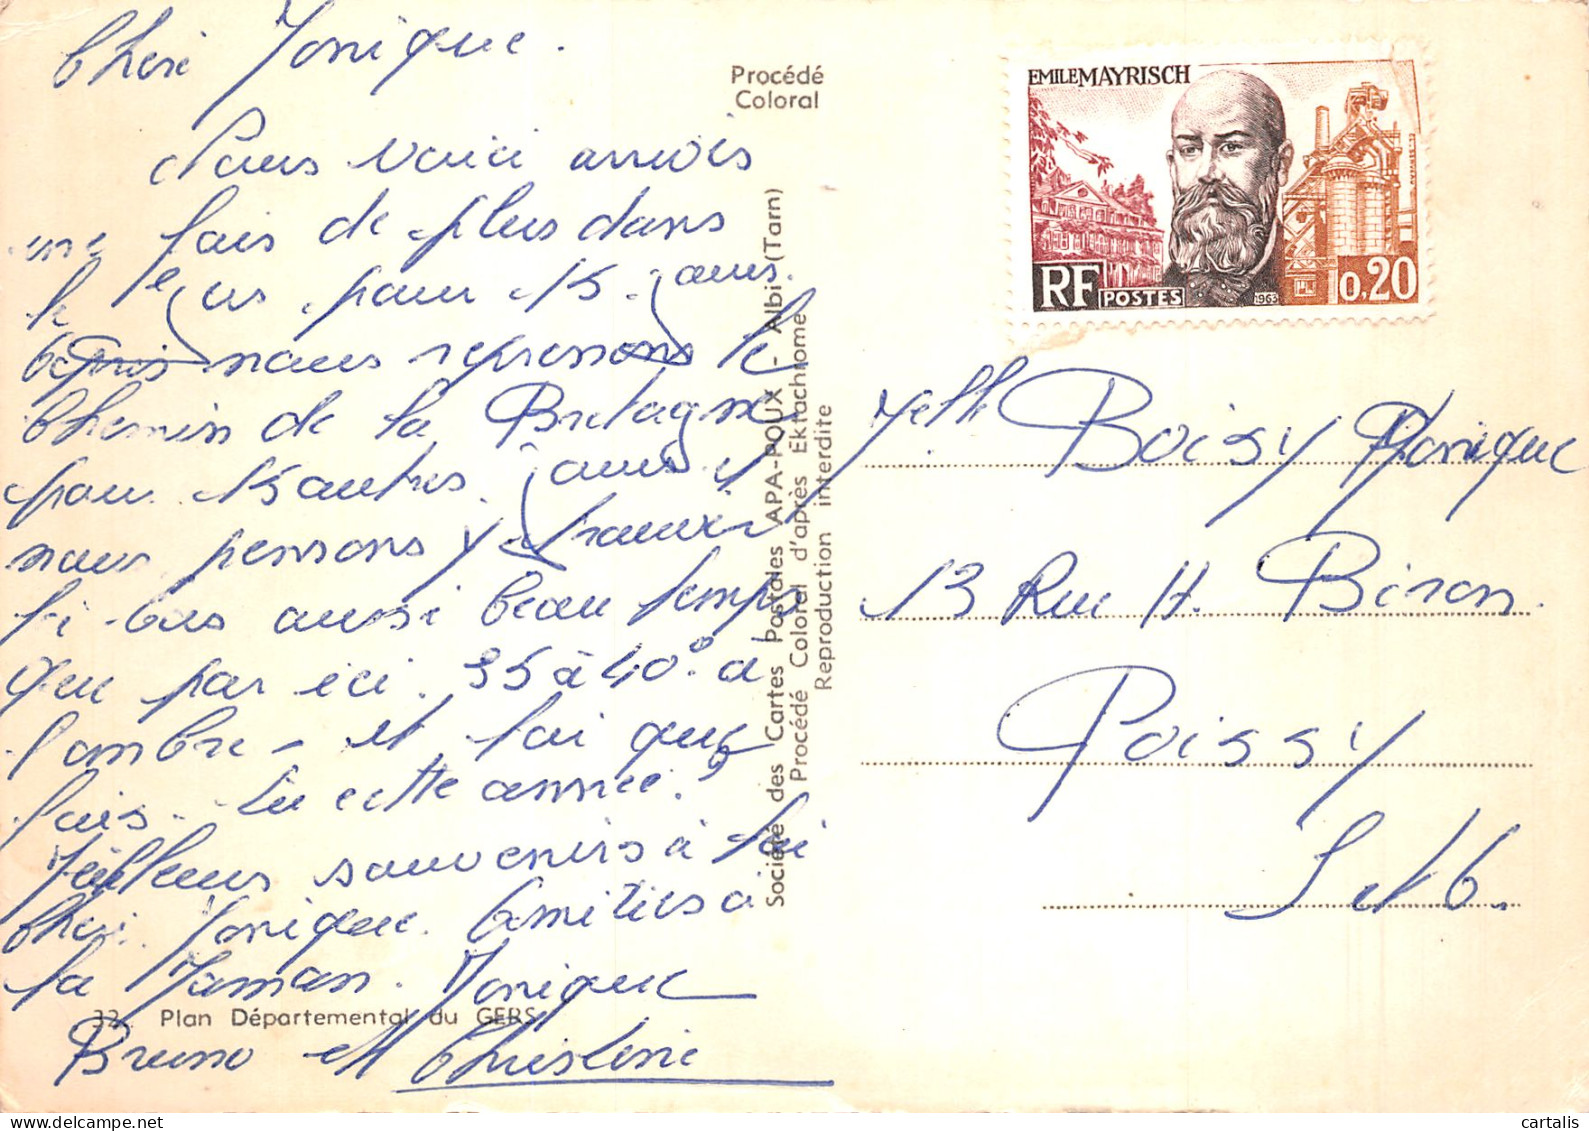 Chère Monique.
Nous voici arrivés
une fois de plus dans
le Gers pour 15 jours.
Après nous reprenons le
Chemin de la Bretagne
pour 15 autres jours
nous pensons y trouver
là-bas aussi beau temps
que par ici. 35 à 40° à
l'ombre - et toi que
fais-tu cette année?
Meilleurs souvenirs à toi
Chère Monique. Amitiés à
ta Maman. Monique
Bruno et Christine
32. Plan Départemental du GERS
Procédé
Coloral
Société des Cartes Postales APA-POUX - Albi (Tarn)
Procédé Coloral d'après Ektachrome
Reproduction interdite
EMILE MAYRISCH
RF POSTES 1963 0,20
Melle Boissy Monique
13 Rue H. Biron.
Poissy
cartalis
www.delcampe.net